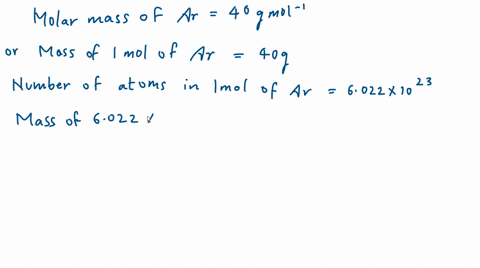 Molar mass of Ar = 40 g mol⁻¹
or Mass of 1 mol of Ar = 40g
Number of atoms in 1mol of Ar = 6.022 × 10²³
Mass of 6.022